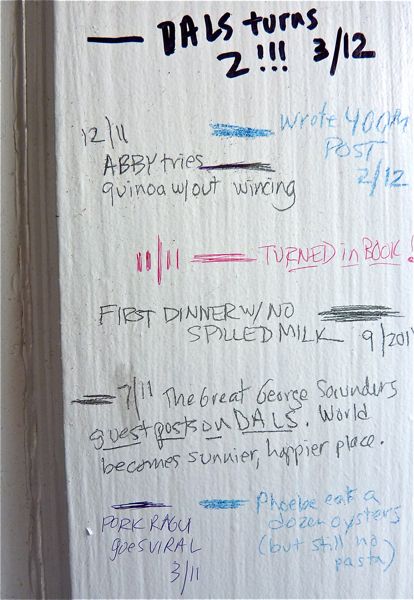 — DALS turns
2!!! 3/12
wrote 400th
POST
2/12
12/11
ABBY tries
quinoa w/out wincing
11/11 — TURNED in BOOK!
FIRST DINNER W/ NO
SPILLED MILK
9/2011
7/11 The Great George Saunders
guest posts on DALS. World
becomes sunnier, happier place.
PORK RAGU
goes VIRAL
3/11
Phoebe eats a
dozen oysters
(but still no
pasta)